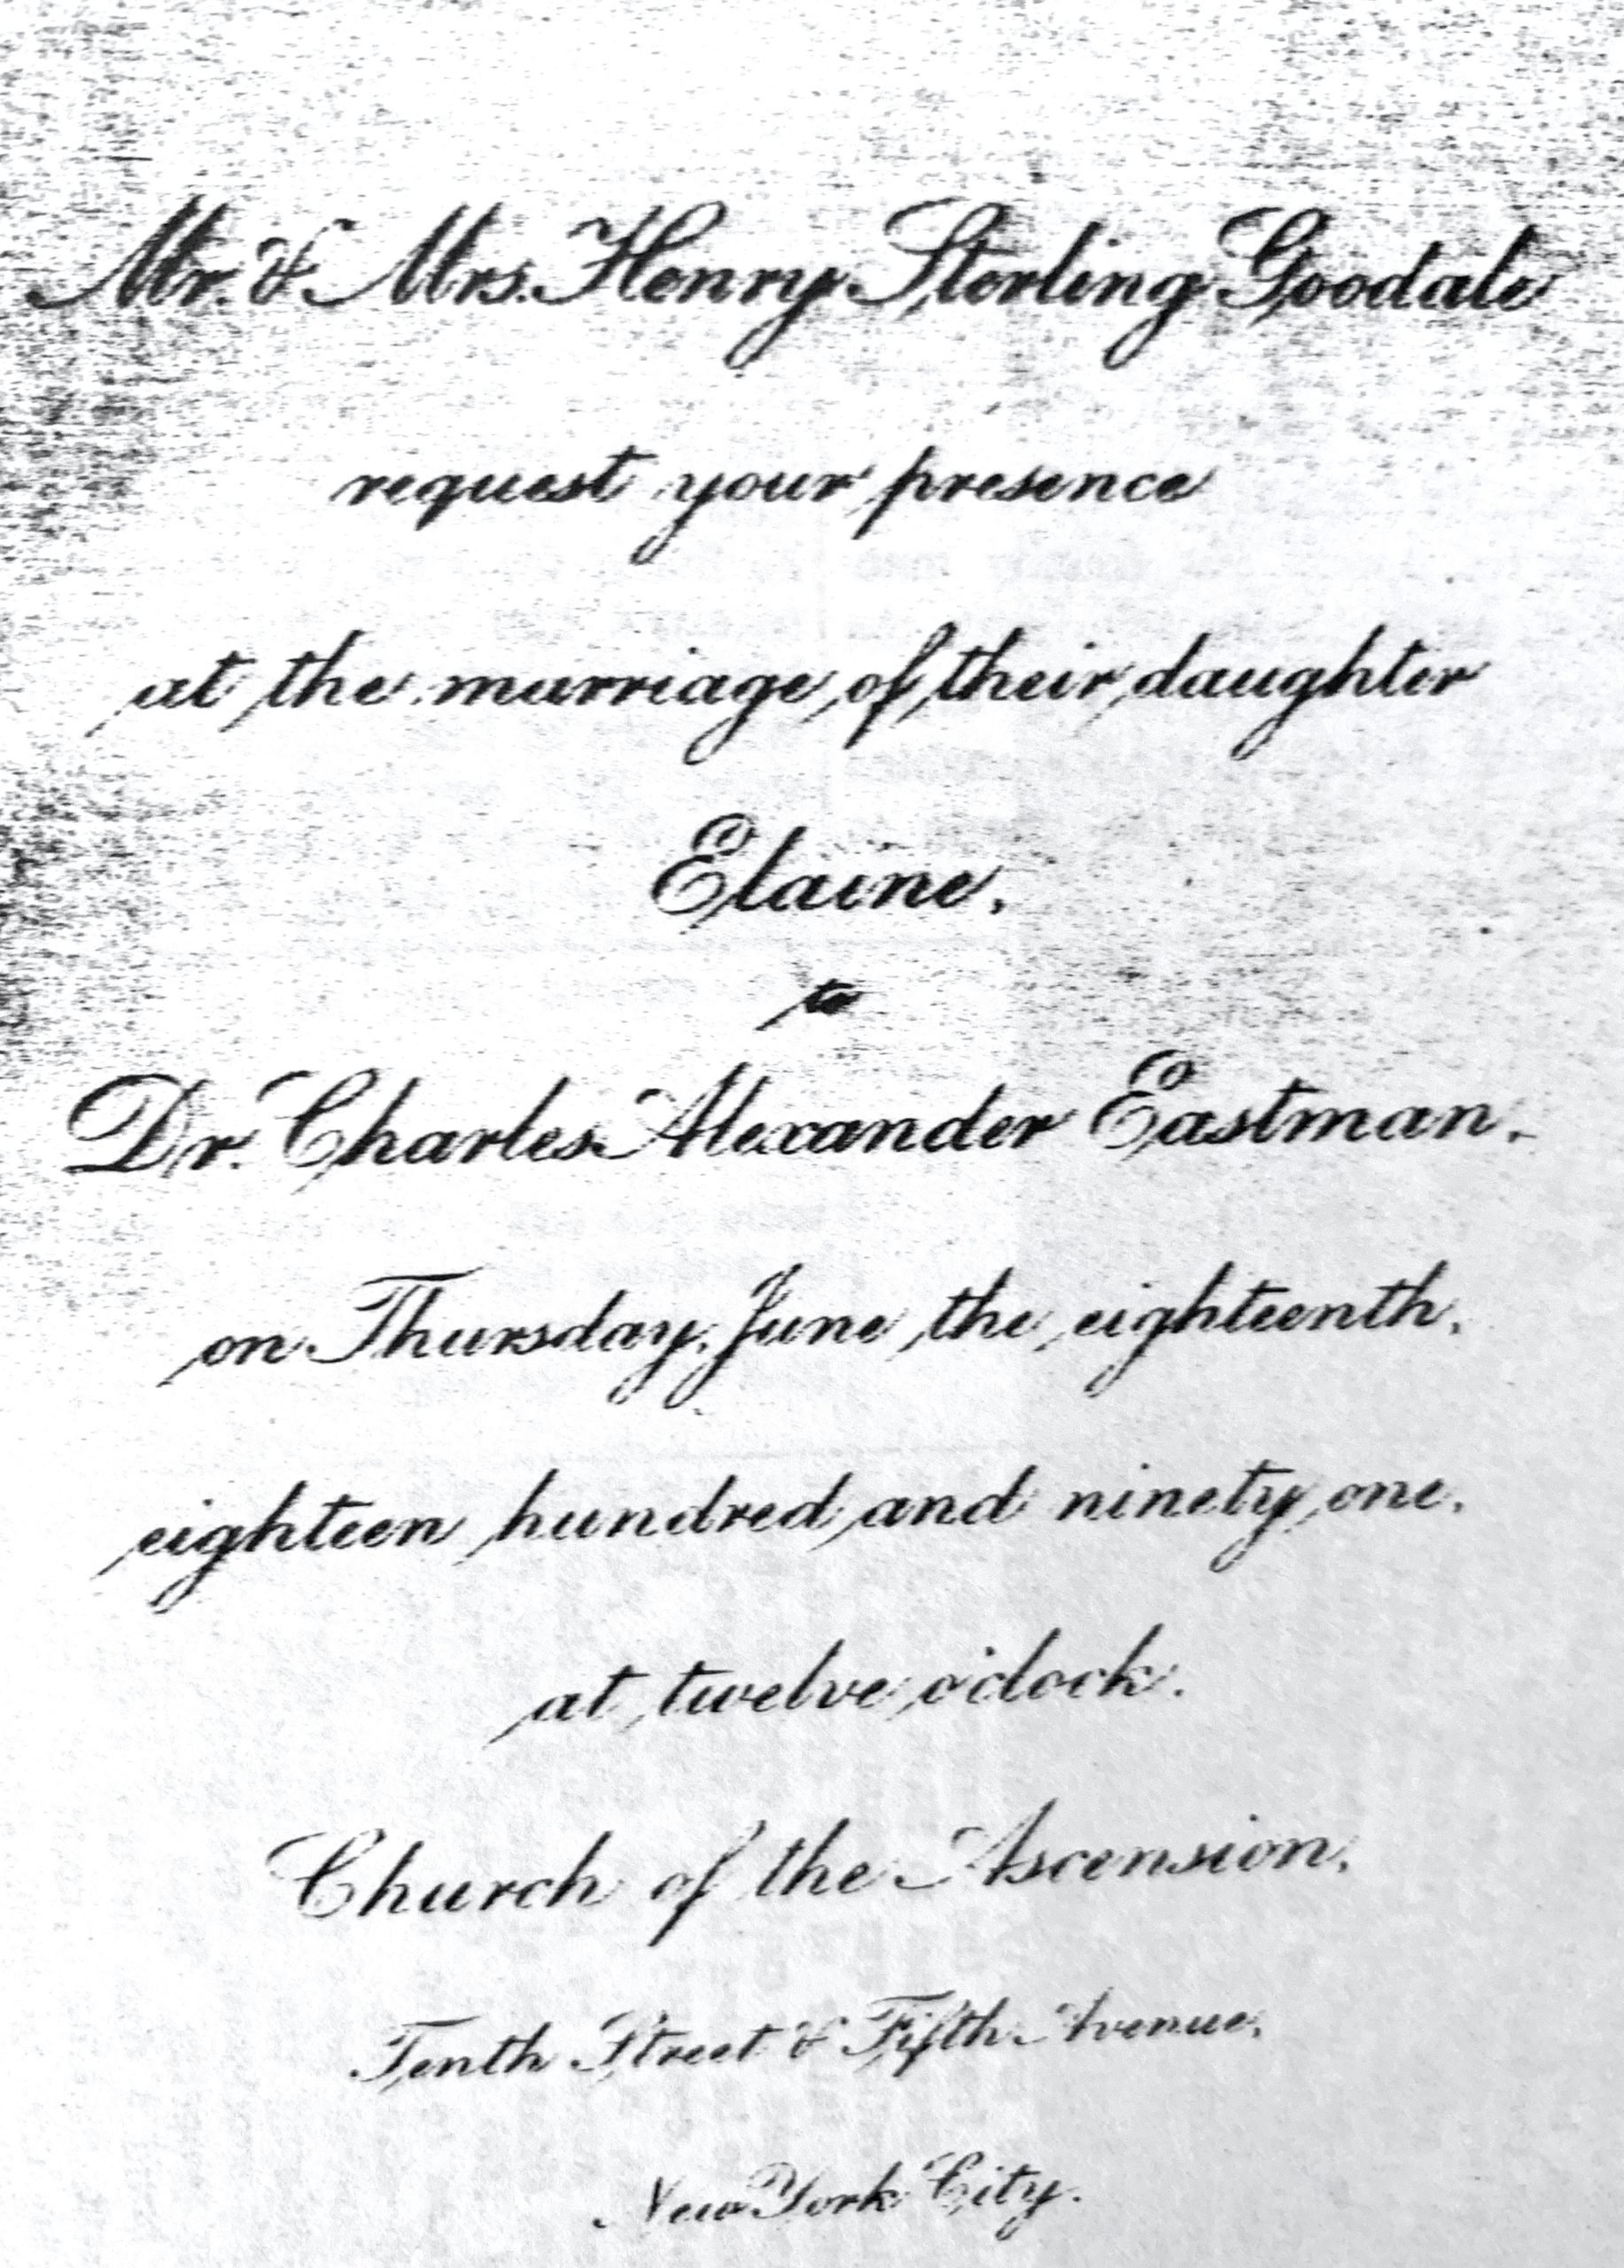 Mr. & Mrs. Henry Sterling Goodale
request your presence
at the marriage of their daughter
Elaine,
to
Dr. Charles Alexander Eastman,
on Thursday, June the eighteenth,
eighteen hundred and ninety one,
at twelve o'clock.
Church of the Ascension,
Tenth Street & Fifth Avenue,
New York City.